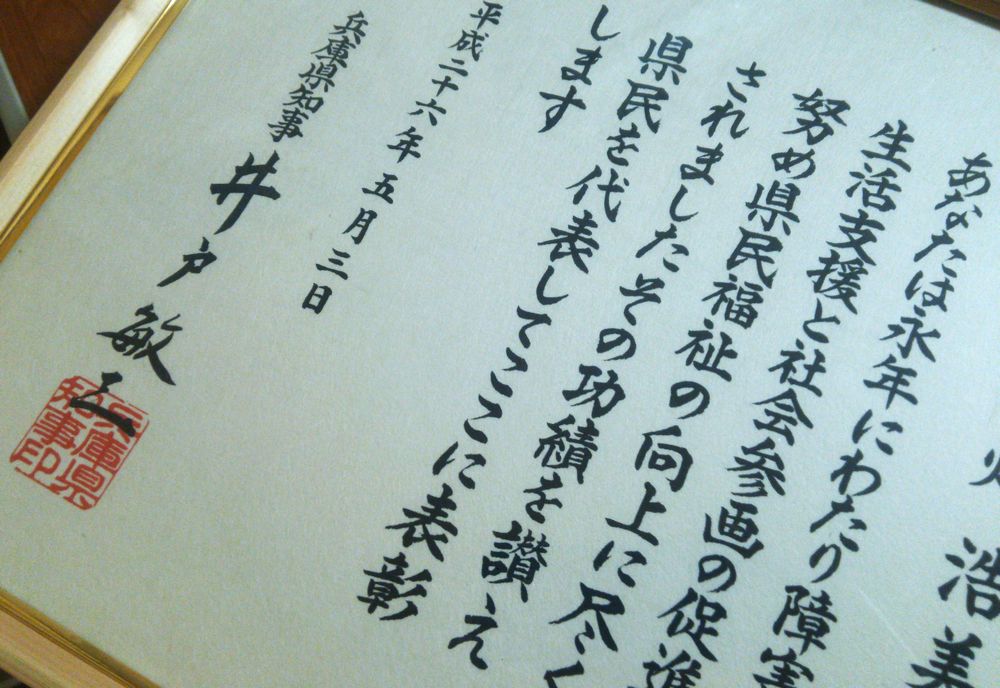 浩美
あなたは永年にわたり障害
生活支援と社会参画の促進
努め県民福祉の向上に尽く
されましたその功績を讃え
県民を代表してここに表彰
します
平成二十六年五月三日
兵庫県知事 井戸敏三
兵庫県
知事印